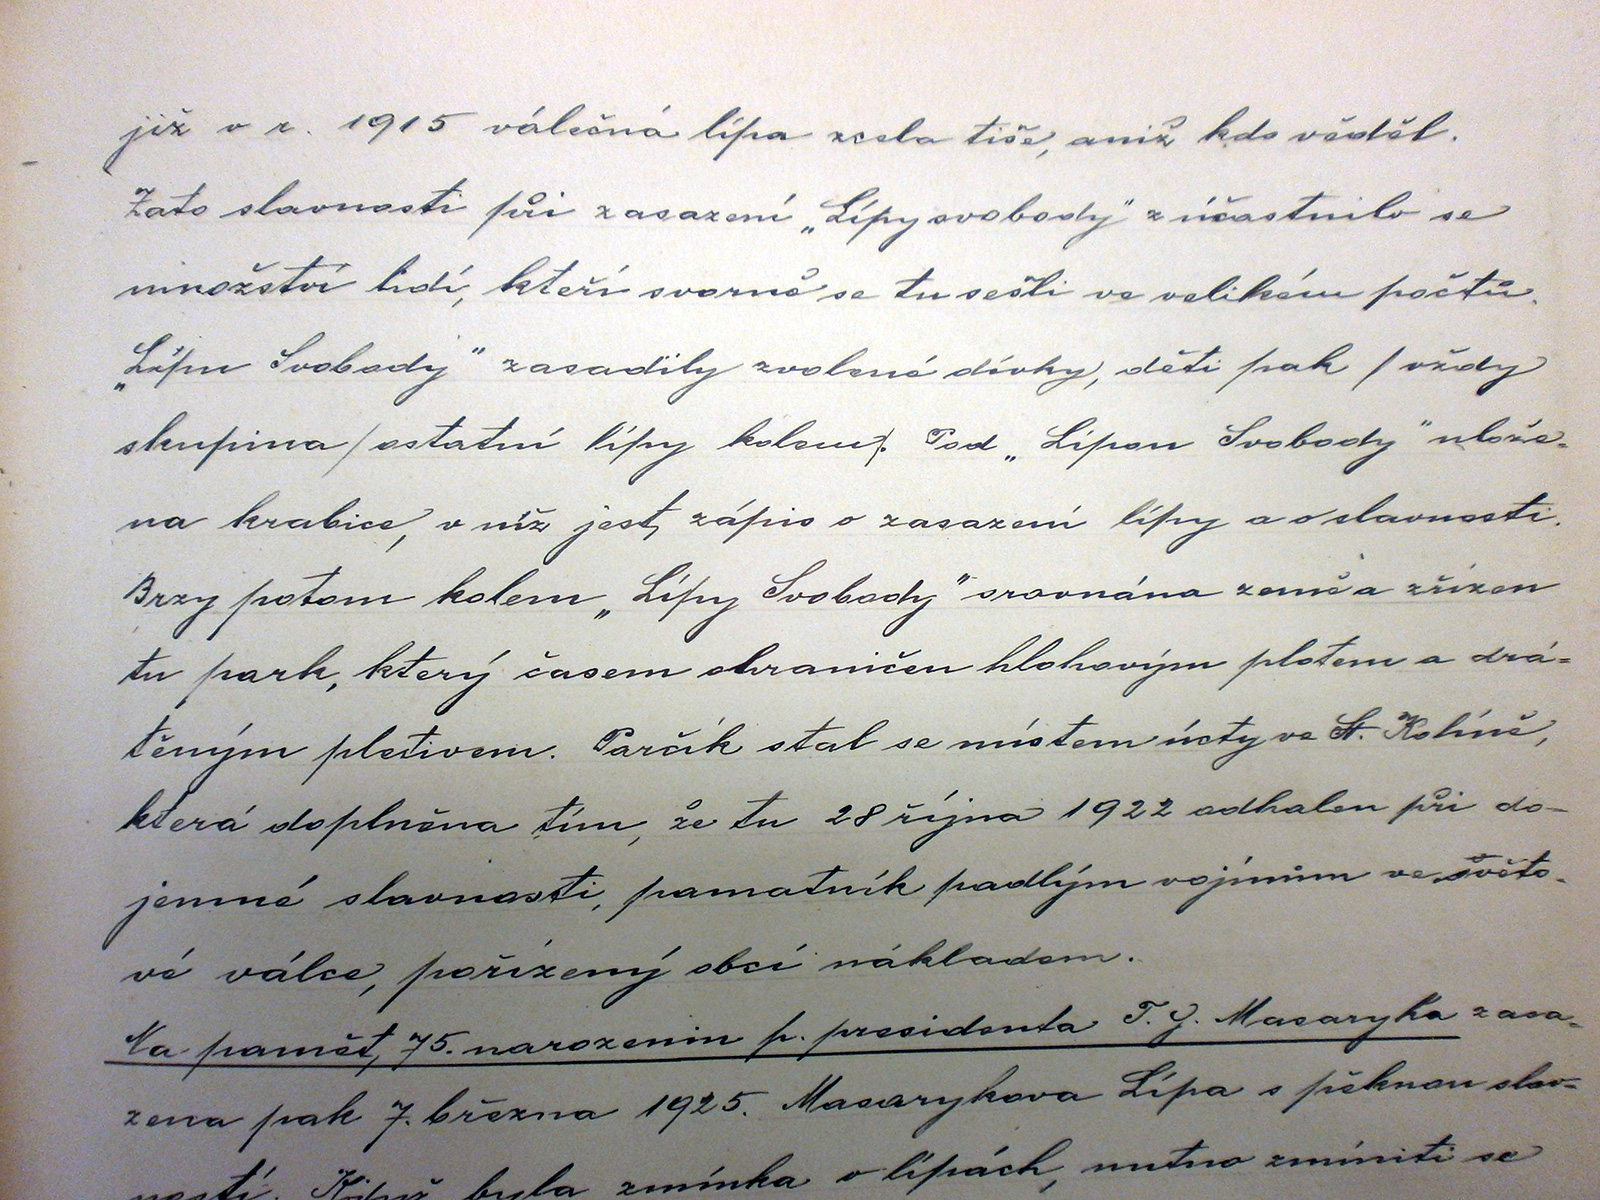 již v r. 1915 válečná lípa zcela tiše, aniž kdo věděl.
Zato slavnosti při zasazení „Lípy svobody" zúčastnilo se
množství lidí, kteří svorně se tu sešli ve velikém počtu.
„Lípu Svobody" zasadily zvolené dívky, děti pak / vždy
skupina / ostatní lípy kolem. Pod „Lípou Svobody" ulože=
na krabice, v níž jest, zápis o zasazení lípy a o slavnosti.
Brzy potom kolem „Lípy Svobody" srovnána země a zřízen
tu park, který časem ohraničen hlohovým plotem a drá=
těným pletivem. Parčík stal se místem úcty ve St. Kolíně,
která doplněna tím, že tu 28 října 1922 odhalen při do-
jemné slavnosti, pamatník padlým vojínům ve světo-
vé válce, pořízený obcí nákladem.
Na pamět, 75. narozenin p. presidenta T. G. Masaryka zasa-
zena pak 7. března 1925. Masarykova Lípa s pěknou slav=
ností. Když byla zmínka o lípách, nutno zmíniti se